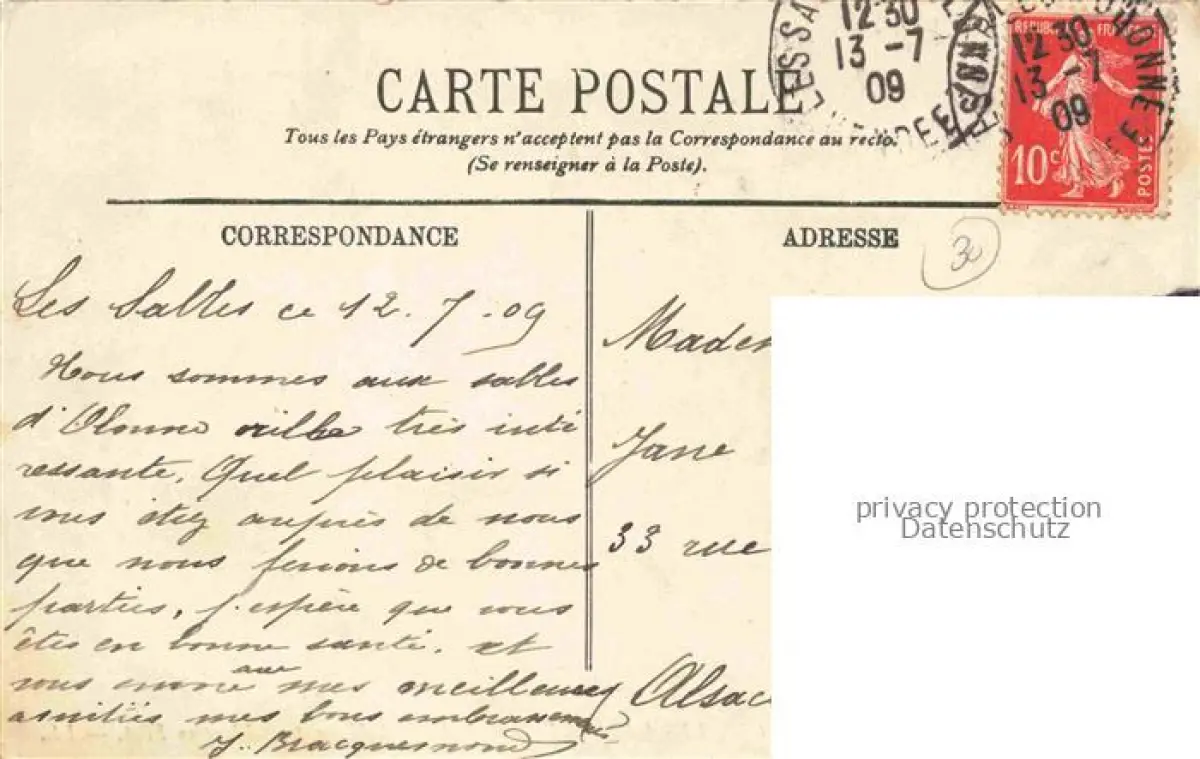 12 30
13 -7
09
12 30
13 -7
09
REPUBLIQUE FRANÇAISE
10 c
POSTES
CARTE POSTALE
Tous les Pays étrangers n'acceptent pas la Correspondance au recto.
(Se renseigner à la Poste).
CORRESPONDANCE
Les Sables ce 12.7.09
Nous sommes aux sables
d'Olonne ville très inté
ressante. Quel plaisir si
vous étiez auprès de nous
que nous ferions de bonnes
parties, j'espère que vous
êtes en bonne santé. et
vous envoie avec mes meilleures
amitiés mes bons embrassements
J. Bracquemond
ADRESSE
30
Madem
Jane
33 rue
Alsac
privacy protection
Datenschutz